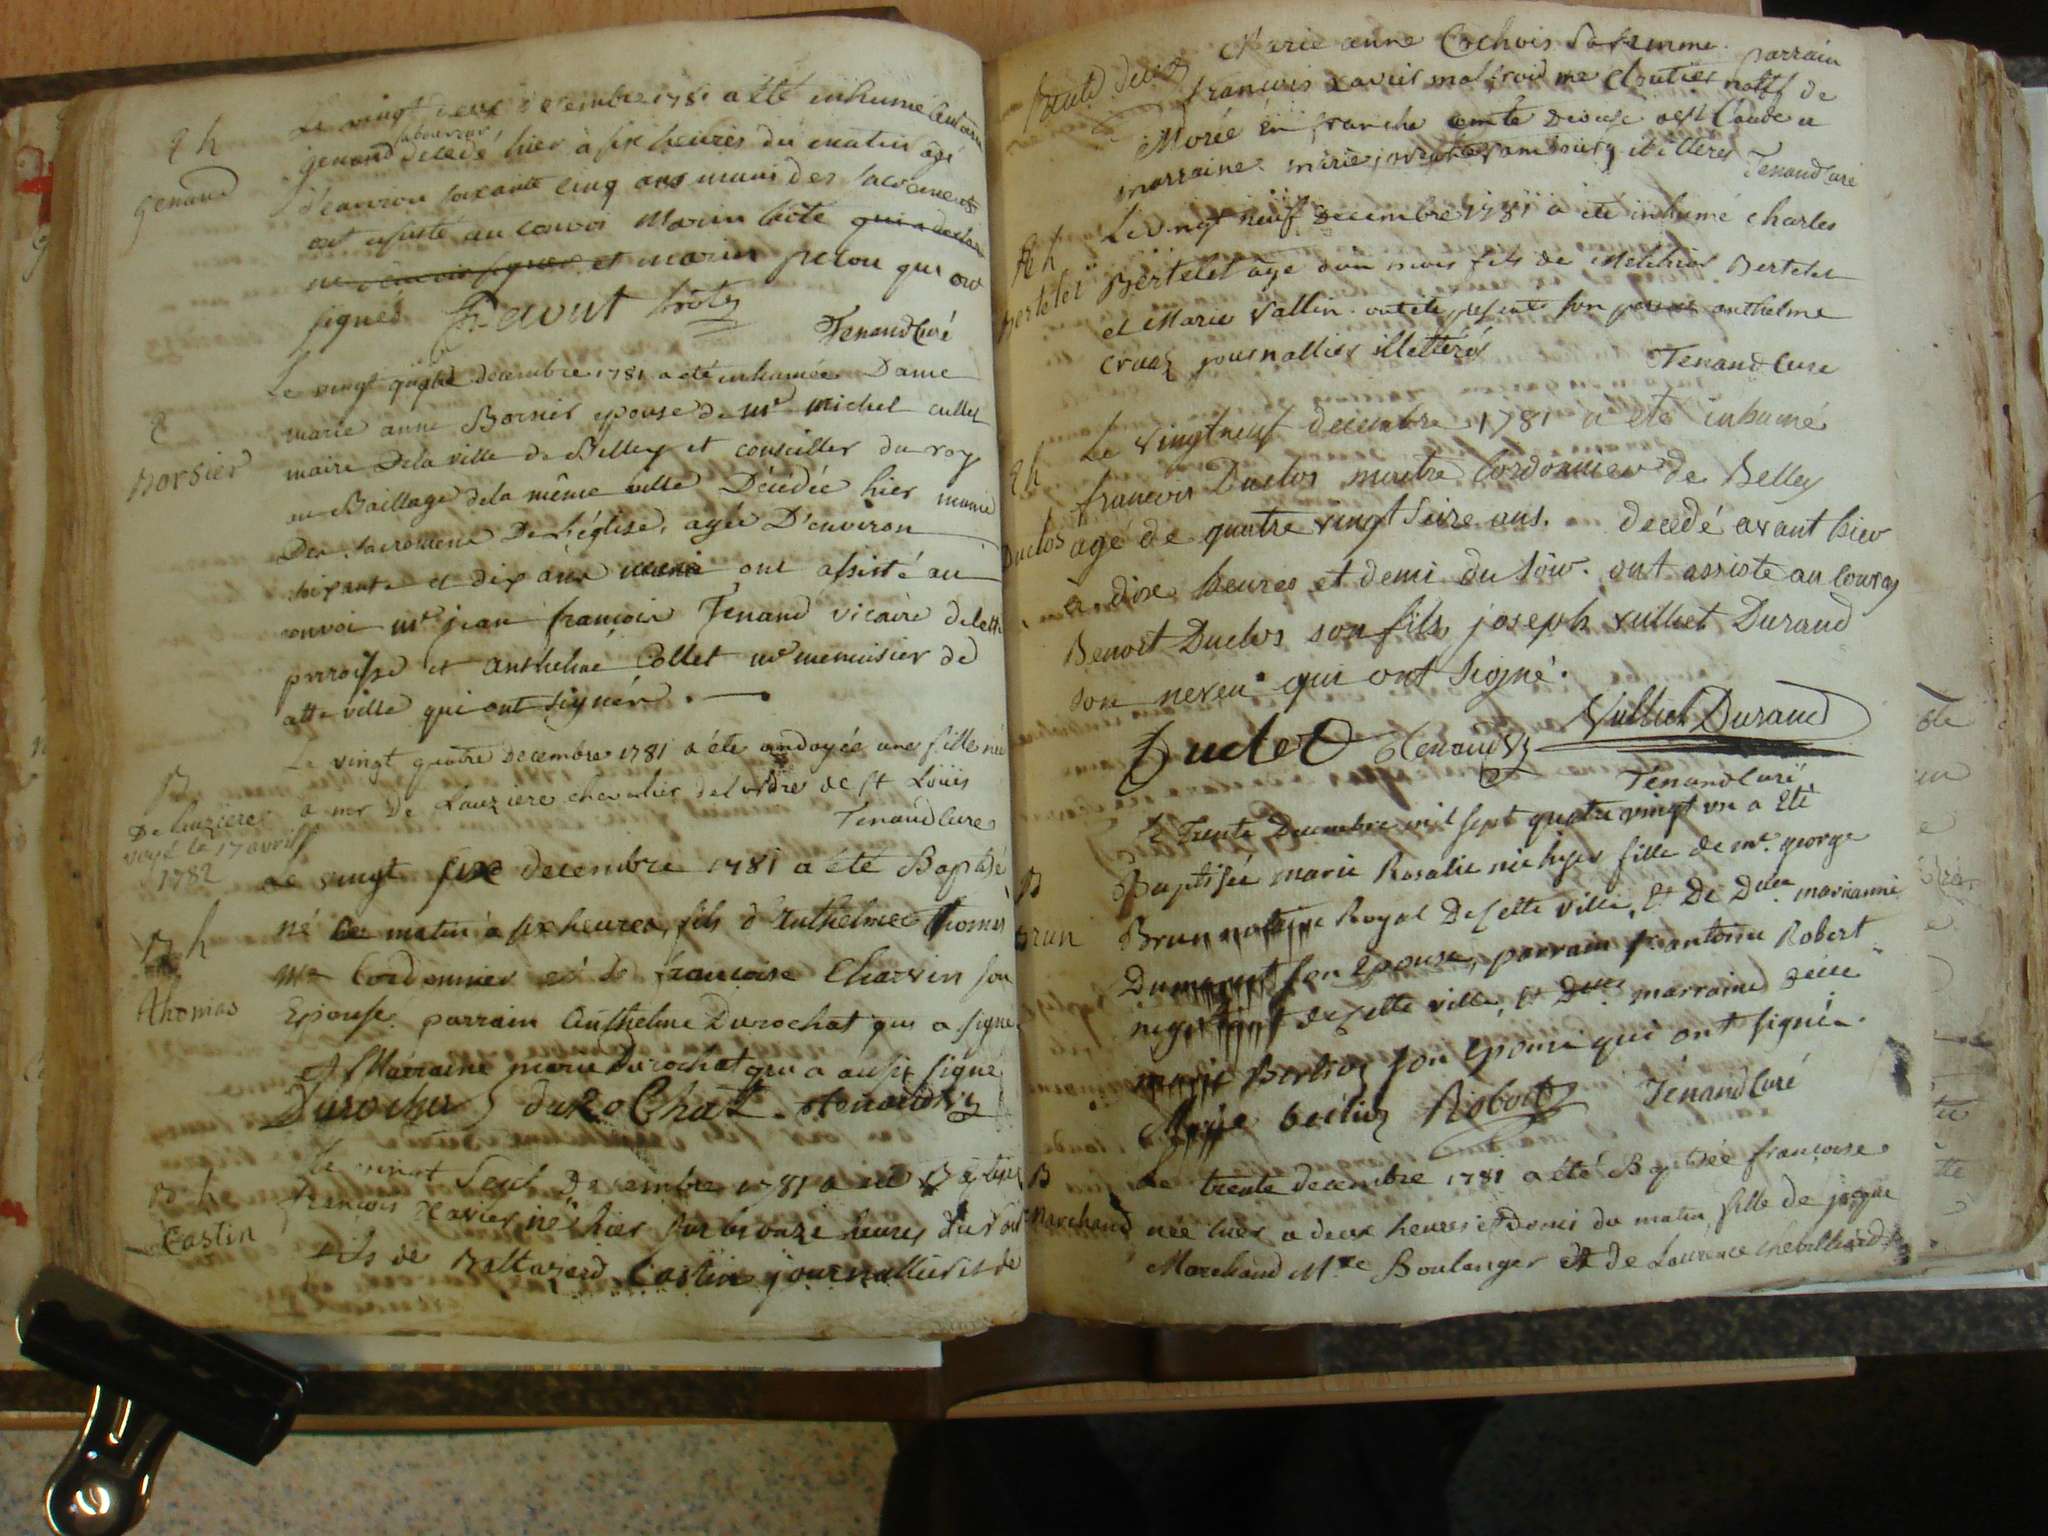 Le vingt decembre 1781 a été inhumé
q h
genand
laboureur
genand decedé hier à six heures du matin agé
d'environ soixante cinq ans muni des sacremens
ont assisté au convoi Marin
et marin qui ont
signés
Tenand Curé
Le vingt quatre decembre 1781 a été inhumée Dame
Borsier
marie anne Borsier epouse de mr michel cullet
maire Dela ville de Belley et conseiller du roy
au Baillage dela même ville Décédée hier munie
Des sacremens De l'église, agée D'environ
soixante et dix ans ont assisté au
convoi mr jean francois Tenand vicaire de cette
parroisse et anthelme Collet me menuisier de
cette ville qui ont signés.
B
De lauziere
voyé le 17 avril
1782
Le vingt quatre decembre 1781 a été ondoyée une fille née
a mr De Lauziere chevalier del ordre de st Loüis
Tenand Cure
Le vingt six decembre 1781 a été Baptisé
B h
Thomas
né ce matin à six heures, fils d'Anthelme Thomas
me Cordonnier et de francoise Charvin son
Epouse parrain Anthelme Durochat qui a signé
et Marraine marie Durochat qui a aussi signé
duroChat
B h
Castin
Le vingt Sept Decembre 1781 a été Baptisé
francois Xavier né hier sur les onze heures du soir
fils de Baltazard Castin journallier et de
Marie anne Cochois sa femme. parrain
francois xavier me Cloutier natif de
Morée en franche comte Diocese de st Claude et
marraine marie illiteres
Tenand Cure
q h
Bertelet
Le vingt neuf Decembre 1781 a été inhumé Charles
Bertelet age d'un mois fils de Melchior Bertelet
et Marie Vallin. ont été present son anthelme
cruaz journallier illettérés
Tenand Cure
q h
Duclos
Le vingt neuf decembre 1781 a été inhumé
francois Duclos maitre Cordonnier de Belley
agé de quatre vingt Seize ans. decedé avant hier
à dix heures et demi du soir. ont assisté au Convoy
Benoit Duclos son fils joseph vulliet Durand
son neveu qui ont signé.
Vulliet Durand
Tenand Curé
B
Brun
Le Trente Decembre mil sept quatre vingt un a été
Baptisée marie Rosalie née hyer fille de mr. george
Brun notaire Royal De cette ville, et De Dlle marianne
Dumarest son epouse, parrain sr antoine Robert
negotiant de cette ville, et Dlle marraine
marie Berlioz son epouse qui ont signé.
Marie berlioz Robert
Tenand Curé
B
Marchand
Le trente decembre 1781 a été Baptisée francoise
née hier a deux heures et Demi du matin fille de jacque
Marchand Mtre Boulanger et de Laurence